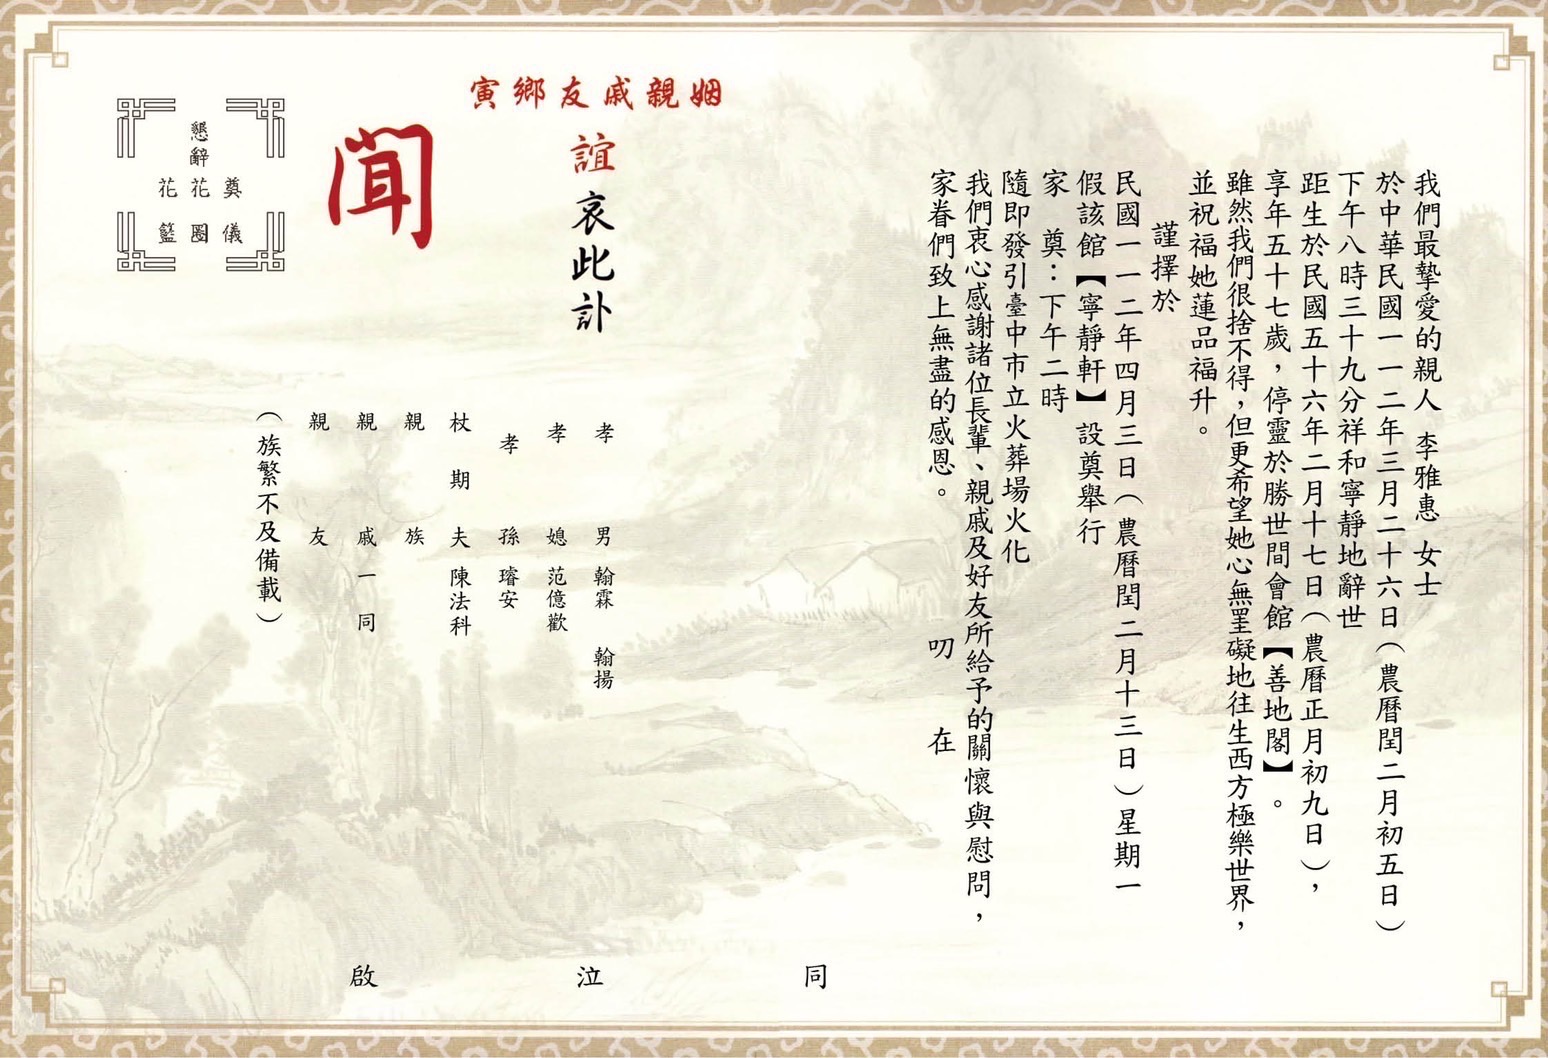 我們最摯愛的親人 李雅惠 女士
於中華民國一一二年三月二十六日（農曆閏二月初五日）
下午八時三十九分祥和寧靜地辭世
距生於民國五十六年二月十七日（農曆正月初九日），
享年五十七歲，停靈於勝世間會館【善地閣】。
雖然我們很捨不得，但更希望她心無罣礙地往生西方極樂世界，
並祝福她蓮品福升。
謹擇於
民國一一二年四月三日（農曆閏二月十三日）星期一
假該館【寧靜軒】設奠舉行
家 奠：下午二時
隨即發引臺中市立火葬場火化
我們衷心感謝諸位長輩、親戚及好友所給予的關懷與慰問，
家眷們致上無盡的感恩。
叨 在
姻親戚友鄉寅
誼哀此訃
聞
孝 男 翰霖 翰揚
孝 媳 范億歡
孝 孫 璿安
杖 期 夫 陳法科
親 族
親 戚 一 同
親 友
（族繁不及備載）
同 泣 啟
懇辭
奠儀
花圈
花籃